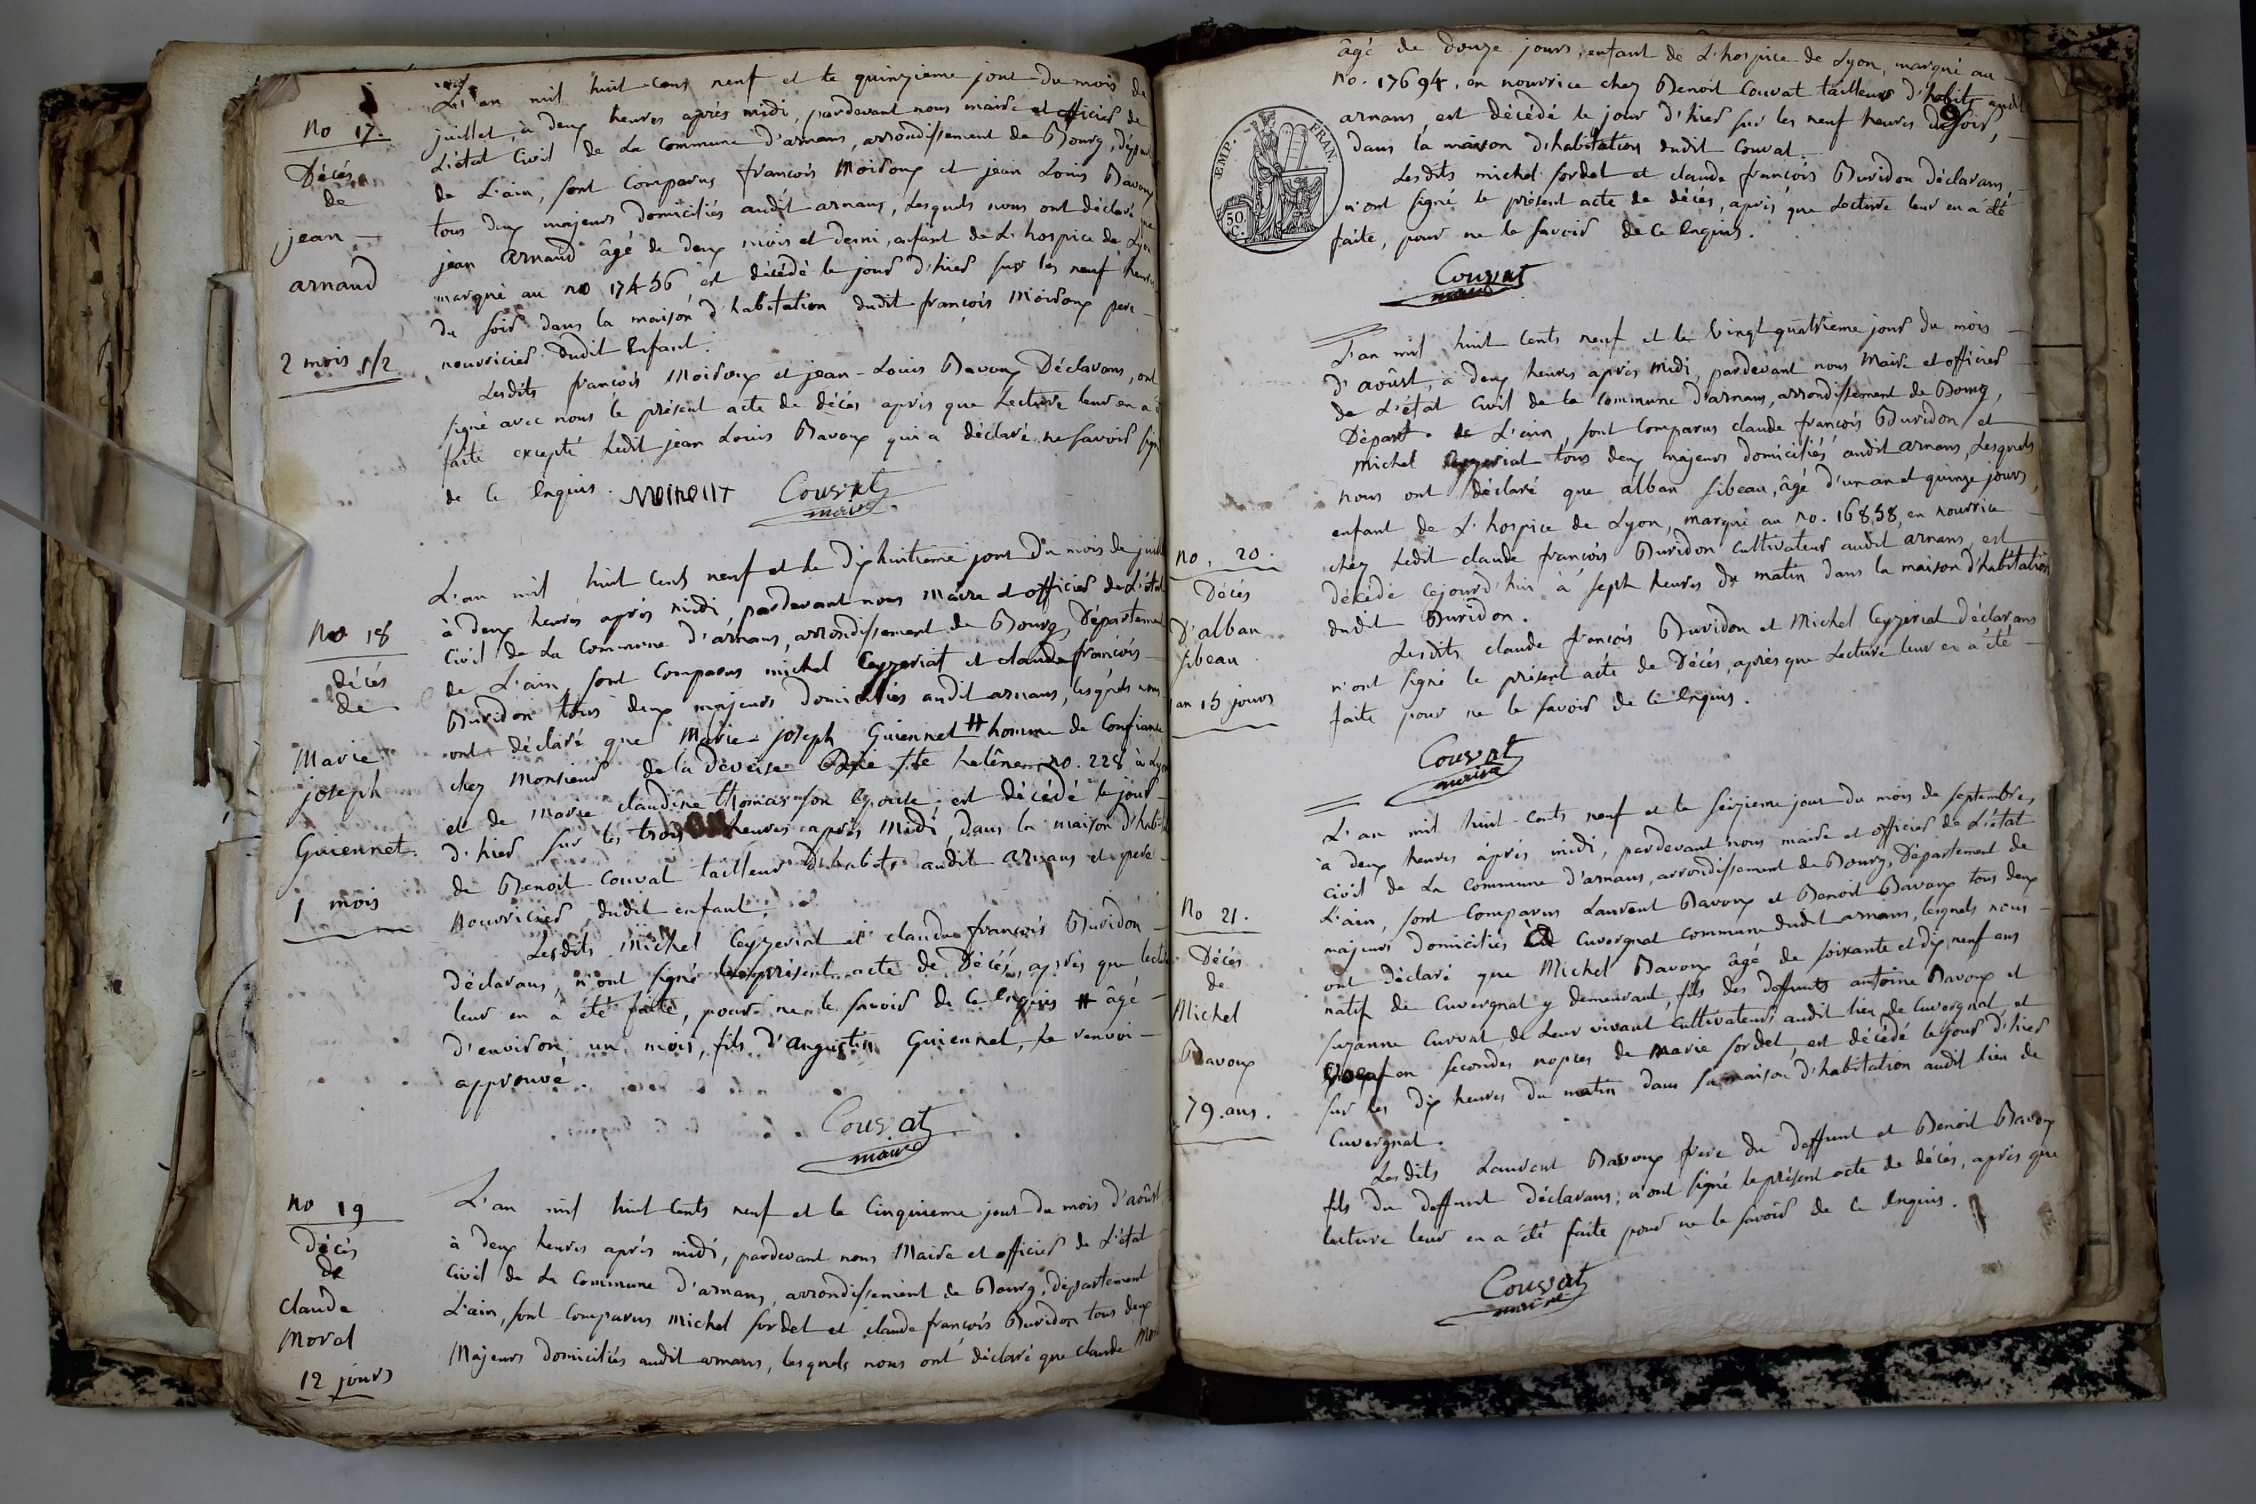 No 17.
Décés
de
jean
arnaud
2 mois 1/2
L'an mil huit cens neuf et le quinzieme jour du mois de
juillet, à deux heures après midi, pardevant nous maire et officier de
L'état Civil de La Commune d'arnans, arrondissement de Bourg,
de L'ain, sont Comparus françois Moiroux et jean Louis Bavoux
tous deux majeurs domiciliés audit arnans, Lesquels nous ont déclaré
jean arnaud âgé de deux mois et demi, enfant de L'hospice de Lyon
marqué au no 17456 est décédé le jour d'hier sur les neuf heures
du soir dans la maison d'habitation dudit françois Moiroux pere
nourricier dudit Enfant.
Lesdits françois Moiroux et jean-Louis Bavoux Déclarans, ont
signé avec nous le présent acte de décés après que Lecture leur en a
faite excepté Ledit jean Louis Bavoux qui a déclaré ne savoir
de ce Enquis. Couvat
maire
No 18
décés
de
Marie
joseph
Guiennet.
1 mois
L'an mil huit cents neuf et le Dix huitieme jour du mois de
à Deux heures après midi pardevant nous Maire et officier de L'état
Civil de La Commune d'arnans, arrondissement de Bourg, Département
de L'ain, sont Comparus michel Ceyzeriat et claude françois
Buridon tous deux majeurs domiciliés audit arnans, lesquels nous
ont déclaré que Marie-joseph Guiennet # homme de Confiance
chez Monsieur de la Deveise Ste helêne no. 228 à Lyon
et de Marie claudine thomas son Epouse, est décédé le jour
d'hier sur les trois heures après Midi, dans la maison
de Benoit Couvat tailleur d'habits audit arnans et pere
Nourricier dudit enfant.
Lesdits Michel Ceyzeriat et claude françois Buridon
Déclarans, n'ont signé le présent acte de Décés, après que
leur en à été faite, pour ne le savoir de ce Enquis # âgé
d'environ un mois, fils d'augustin Guiennet, Le renvoi
approuvé.
Couvat
maire
No 19
Décés
de
Claude
Moral
12 jours
L'an mil huit Cents neuf et le Cinquieme jour du mois d'août
à deux heures après midi, pardevant nous Maire et officier de L'état
Civil de La Commune d'arnans, arrondissement de Bourg, département
L'ain, sont Comparus Michel sordet et claude françois Buridon tous deux
Majeurs domiciliés audit arnans, lesquels nous ont déclaré que claude
âgé de douze jours, enfant de L'hospice de Lyon, marqué au
no. 17694, en nourrice chez Benoit Couvat tailleur d'habits
9
arnans, est décédé le jour d'hier sur les neuf heures du soir,
dans la maison d'habitation dudit Couvat.
EMP. FRAN.
50 C.
Lesdits michel sordet et claude françois Buridon Déclarans,
n'ont signé le présent acte de décés, après que Lecture leur en a été
faite, pour ne le savoir de ce Enquis.
Couvat
maire
L'an mil huit Cents neuf et le Vingt quatrieme jour du mois
d'août, à deux heures après midi, pardevant nous Maire et officier
de L'état Civil de la Commune d'arnans, arrondissement de Bourg,
Départ. de L'ain, sont Comparus claude françois Buridon et
Michel Ceyzeriat tous deux majeurs domiciliés audit arnans, Lesquels
nous ont déclaré que alban sibeau, âgé d'un an et quinze jours,
enfant de L'hospice de Lyon, marqué au no. 16858, en nourrice
no. 20.
Décés
D'alban
sibeau
an 15 jours
chez Ledit claude françois Buridon Cultivateur audit arnans, est
décédé Cejourd'hui à seph heures du matin dans la maison d'habitation
dudit Buridon.
Lesdits claude françois Buridon et Michel Ceyzeriat Déclarans
n'ont signé le présent acte de Décés, après que Lecture leur en à été
faite pour ne le savoir de ce Enquis.
Couvat
maire
L'an mil huit Cents neuf et le seizieme jour du mois de septembre,
à deux heures après midi, pardevant nous maire et officier de L'état
Civil de La Commune d'arnans, arrondissement de Bourg, Département de
L'ain, sont Comparus Laurent Bavoux et Benoit Bavoux tous deux
majeurs domiciliés Cuvergnat commune dudit arnans, lesquels nous
ont déclaré que Michel Bavoux âgé de soixante et dix neuf ans
natif de Cuvergnat y demeurant, fils des deffunts antoine Bavoux et
suzanne Curvat de Leur vivant Cultivateurs audit lieu de Cuvergnat, et
en secondes nopces de Marie sordet, est décédé le jour d'hier
sur les dix heures du matin dans sa maison d'habitation audit lieu de
Cuvergnat.
No 21.
Décés
de
Michel
Bavoux
79. ans.
Lesdits Laurent Bavoux frere du deffunt et Benoit Bavoux
fils du deffunt déclarans, n'ont signé le présent acte de décés, après que
Lecture leur en a été faite pour ne le savoir de ce Enquis.
Couvat
maire